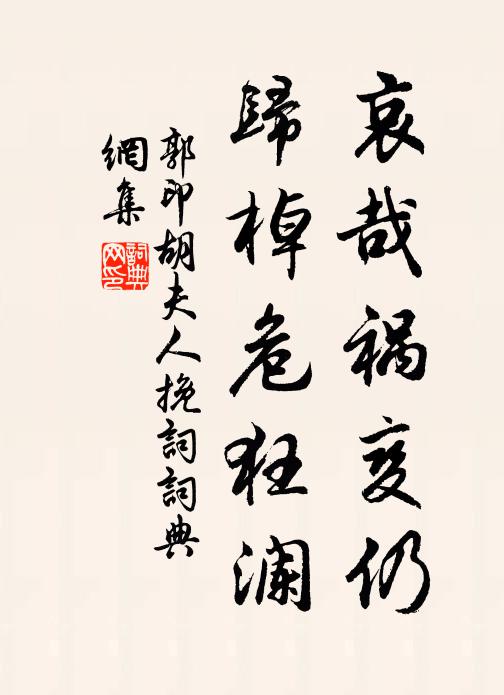 哀哉祸变仍
歸棹危狂澜
郭印胡夫人挽詞詞典
網集
詞典网印